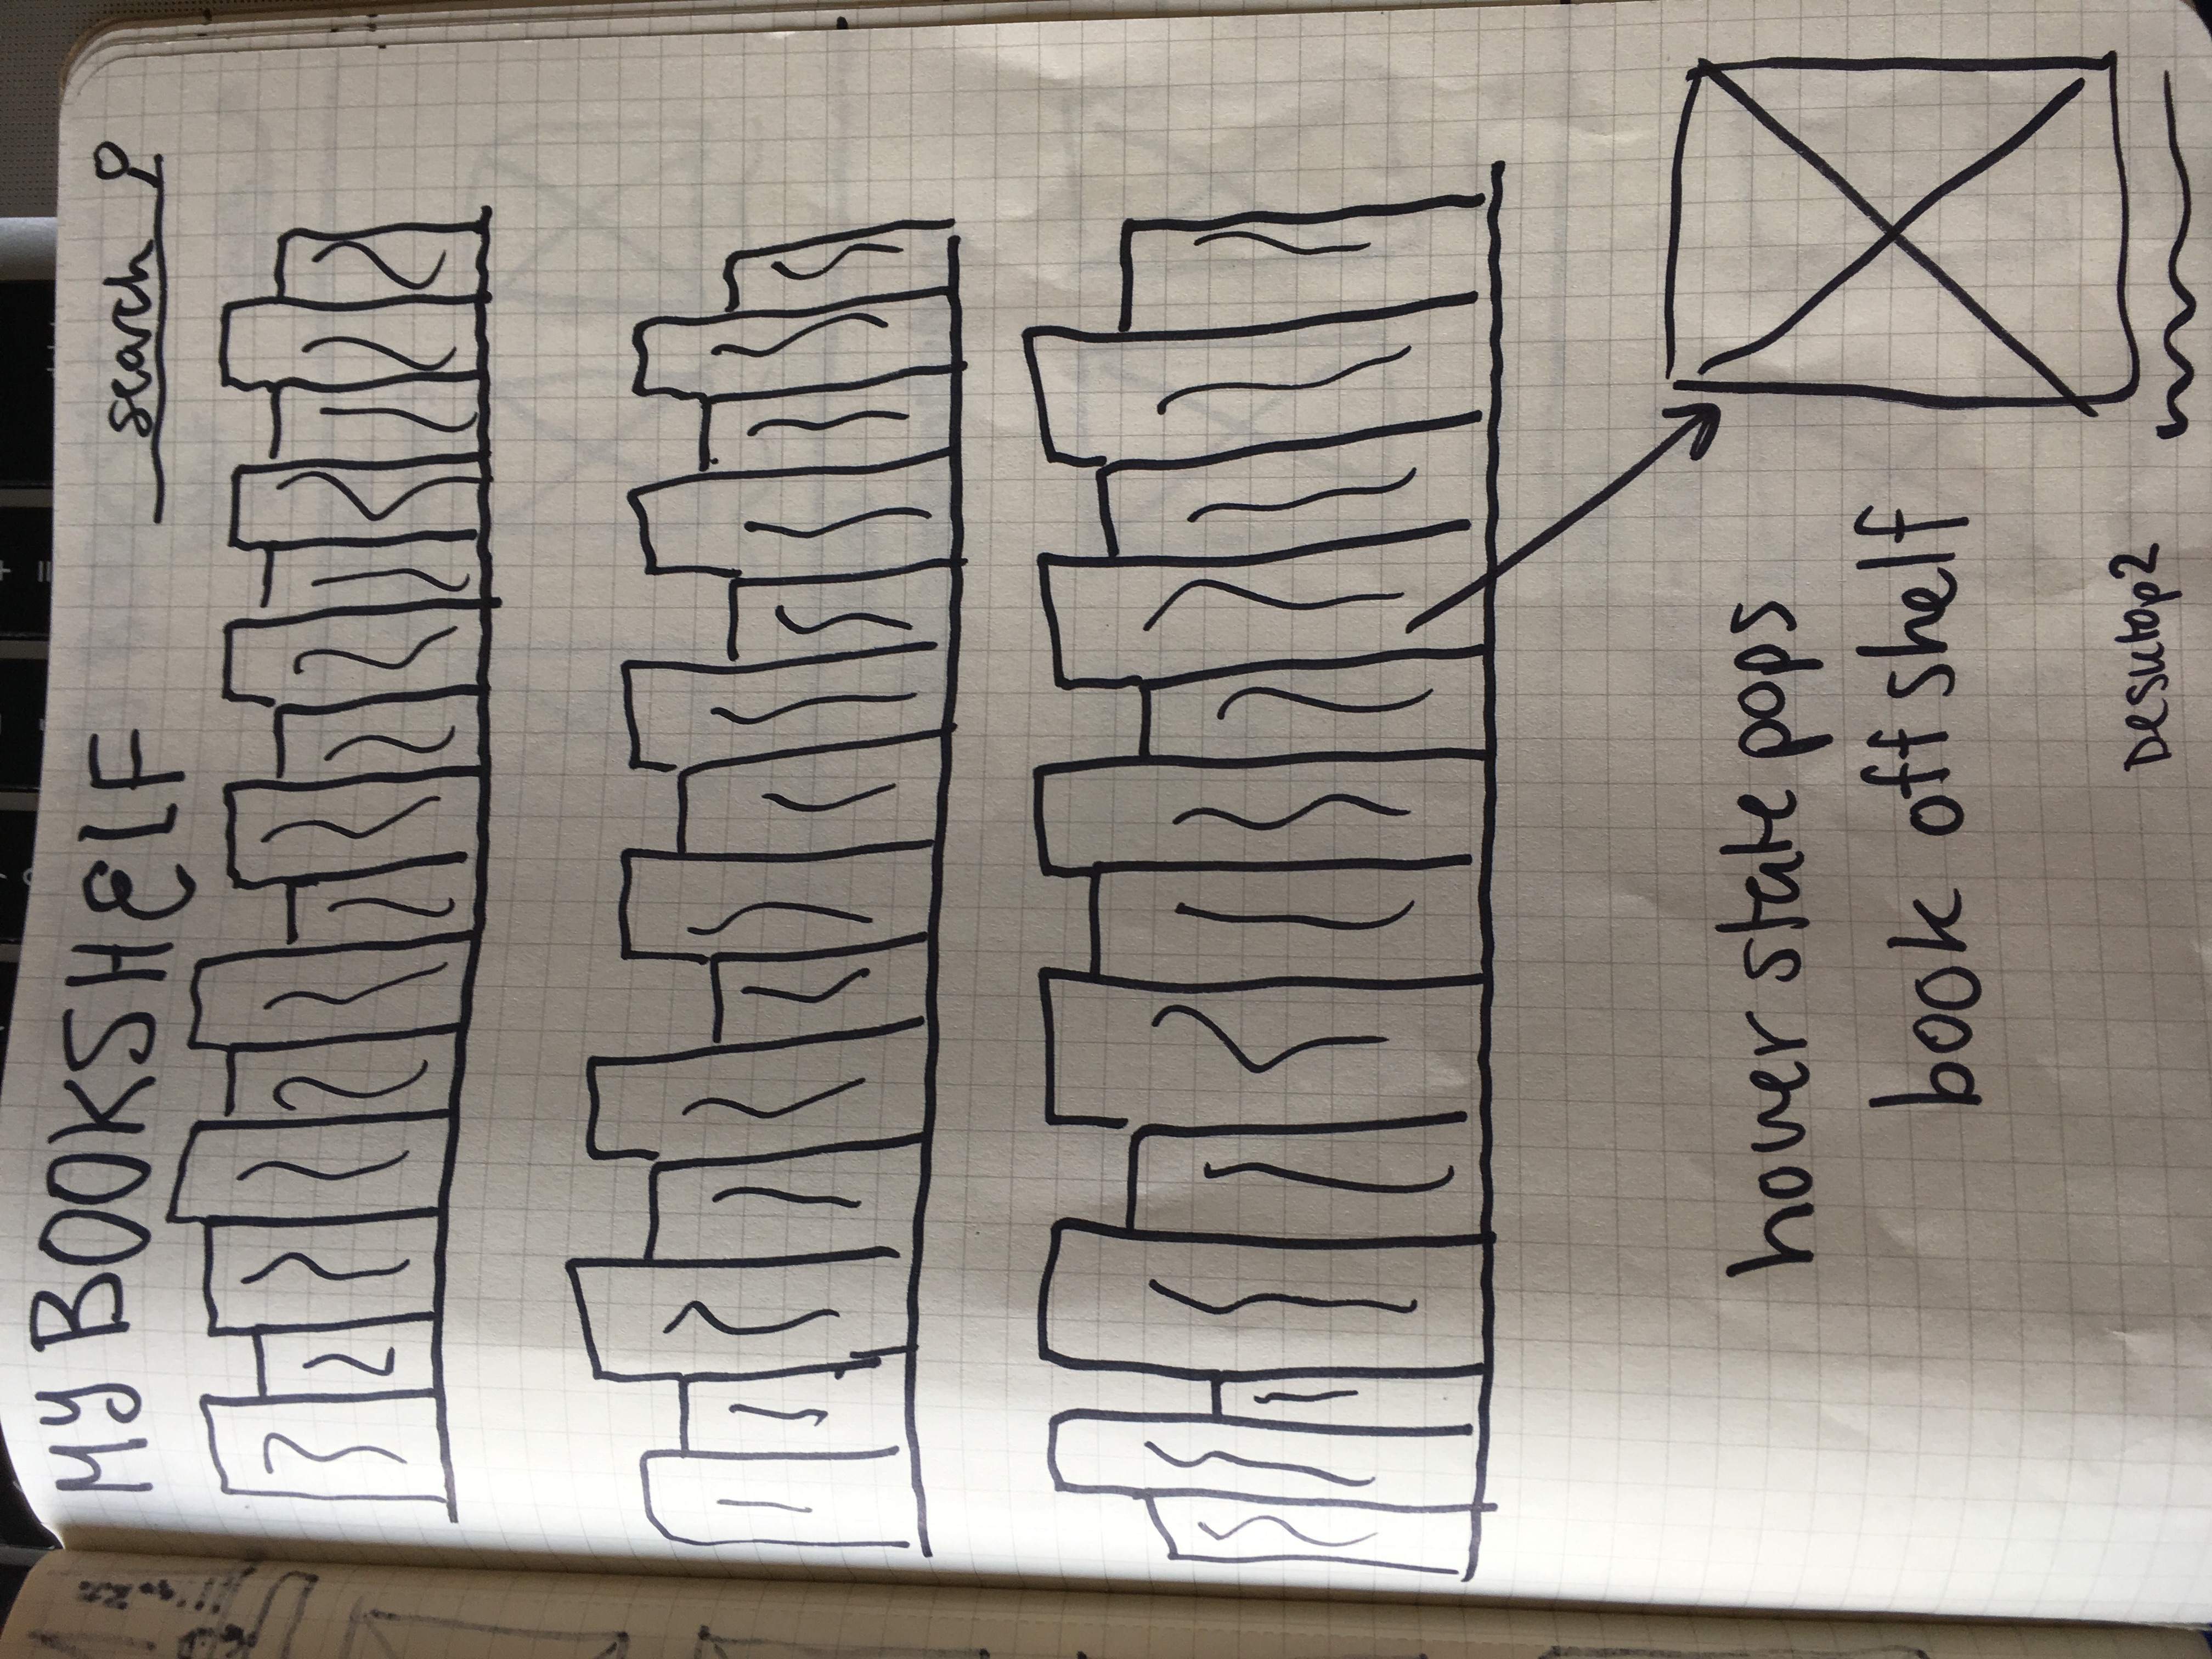 MY BOOKSHELF
search
hover state pops
book off shelf
Desktop2